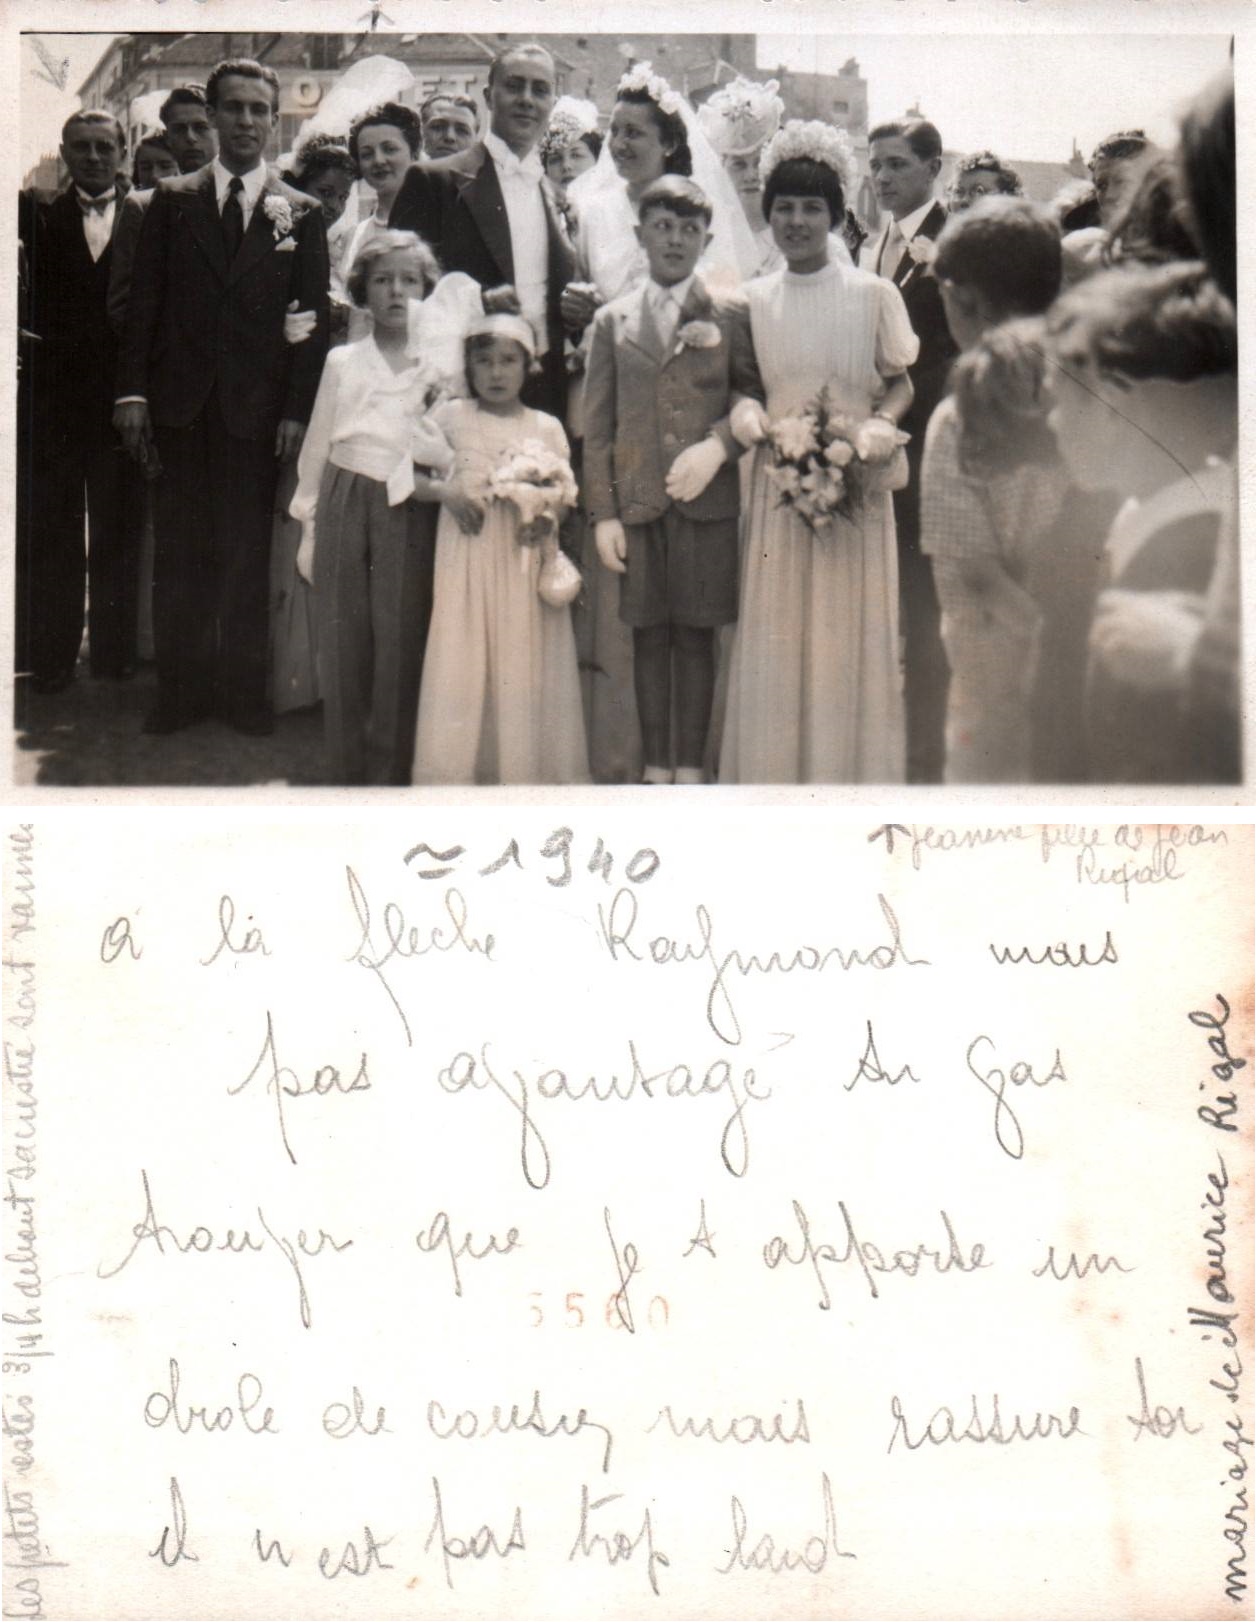 O ET
≃ 1940
↑ Jeanine fille de Jean
Rigal
a la fleche Raymond mais
pas avantagé tu vas
trouver que je t apporte un
drole de cousin mais rassure toi
il n est pas trop laid
5560
mariage de Maurice Rigal
les petits restés 3/4h debout sacristie sont